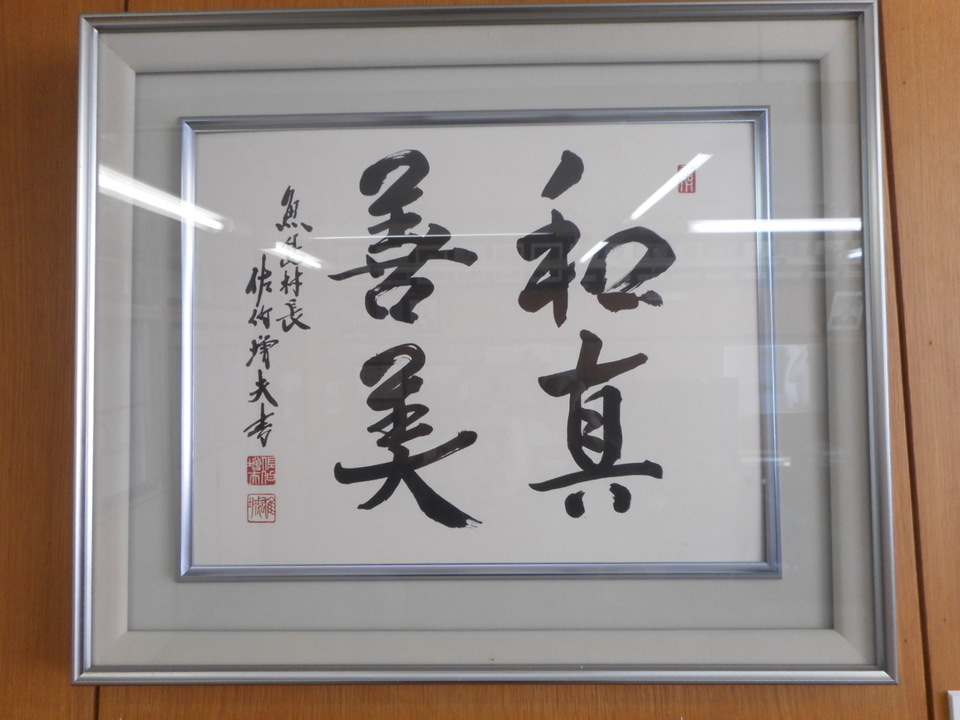 和真
善美
魚沼村長
佐竹増夫書